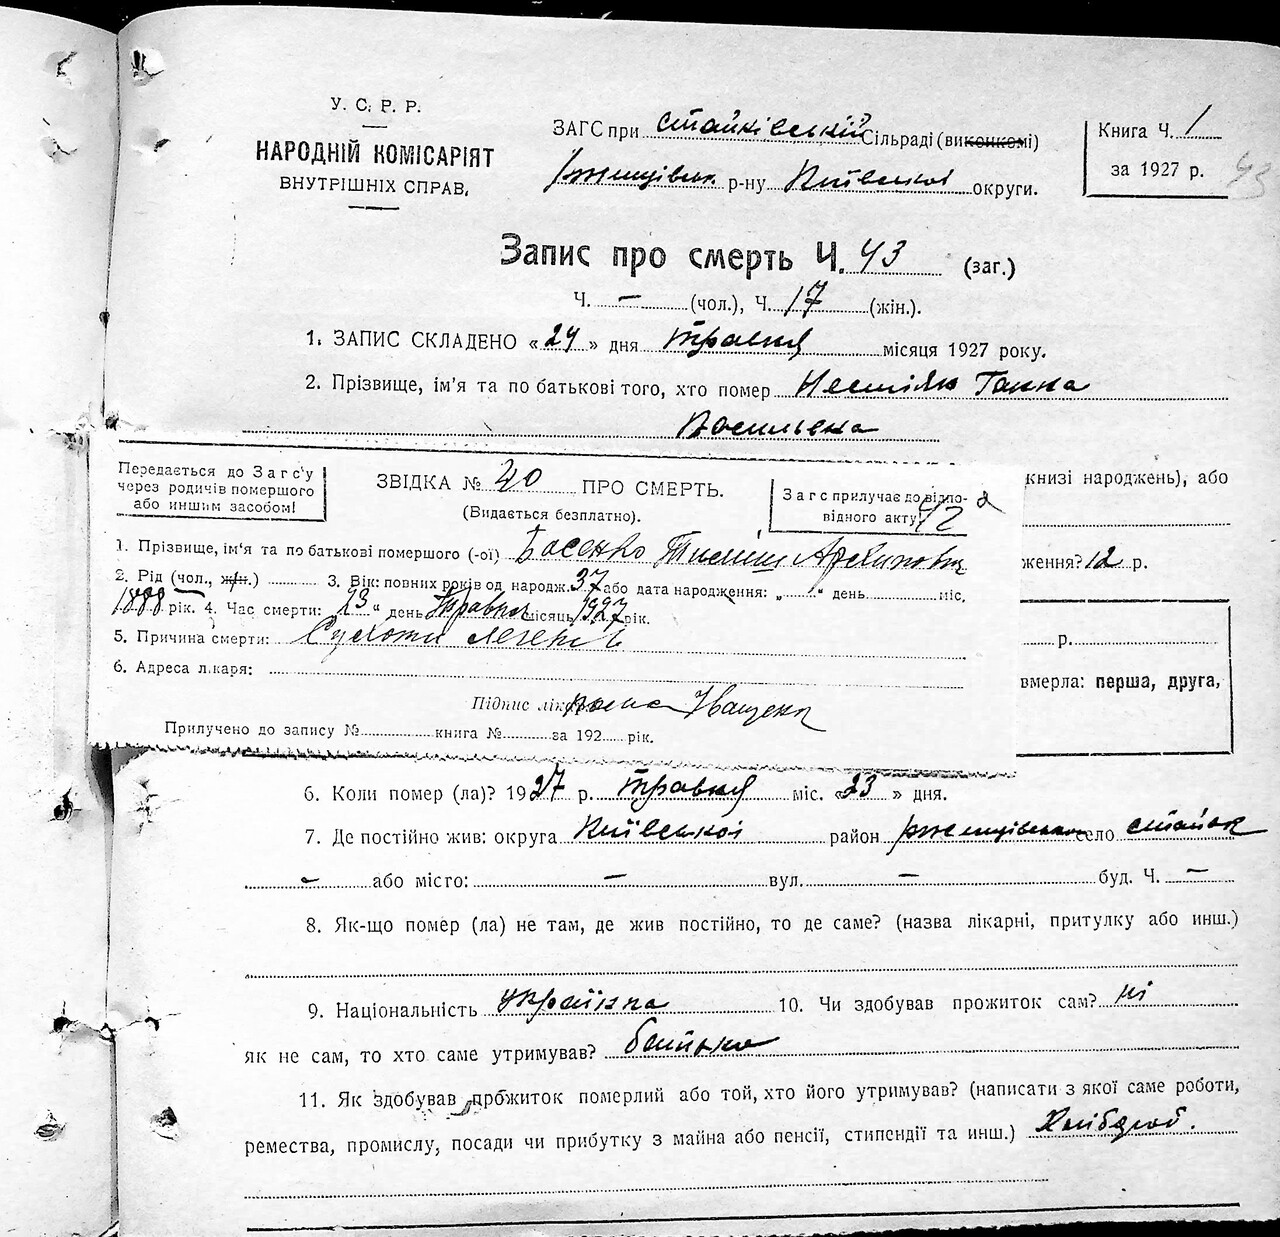 У. С. Р. Р.
НАРОДНІЙ КОМІСАРІЯТ
ВНУТРІШНІХ СПРАВ.
ЗАГС при стайківській Сільраді (виконкомі)
Ржищівськ р-ну Київської округи.
Книга Ч. 1
за 1927 р.
43
Запис про смерть Ч. 43 (заг.)
Ч. — (чол.), Ч. 17 (жін.).
1. ЗАПИС СКЛАДЕНО «24» дня травня місяця 1927 року.
2. Прізвище, ім'я та по батькові того, хто помер Ганна
Васильена
книзі народжень), або
ження? 12 р.
р.
вмерла: перша, друга,
Передається до Загс'у
через родичів помершого
або иншим засобом!
ЗВІДКА № 20 ПРО СМЕРТЬ.
(Видається безплатно).
Загс прилучає до відпо-
відного акту!
42
1. Прізвище, ім'я та по батькові помершого (-ої) Босенко Тимиш Архипович
2. Рід (чол., жін.) 3. Вік: повних років од народж. 37 або дата народження: „ " день міс.
1888 рік. 4. Час смерти: 23 " день Травня місяць 1927 рік.
5. Причина смерти: Сухоти легенів
6. Адреса лікаря:
Підпис лікаря Іващенко
Прилучено до запису № книга № за 192 рік.
6. Коли помер (ла)? 1927 р. травня міс. «23» дня.
7. Де постійно жив: округа Київської район ржищівськ село стайок
— або місто: — вул. — буд. Ч. —
8. Як-що помер (ла) не там, де жив постійно, то де саме? (назва лікарні, притулку або инш.)
9. Національність українка 10. Чи здобував прожиток сам? ні
як не сам, то хто саме утримував? батько
11. Як здобував прожиток померлий або той, хто його утримував? (написати з якої саме роботи,
ремества, промислу, посади чи прибутку з майна або пенсії, стипендії та инш.) Хлібороб.